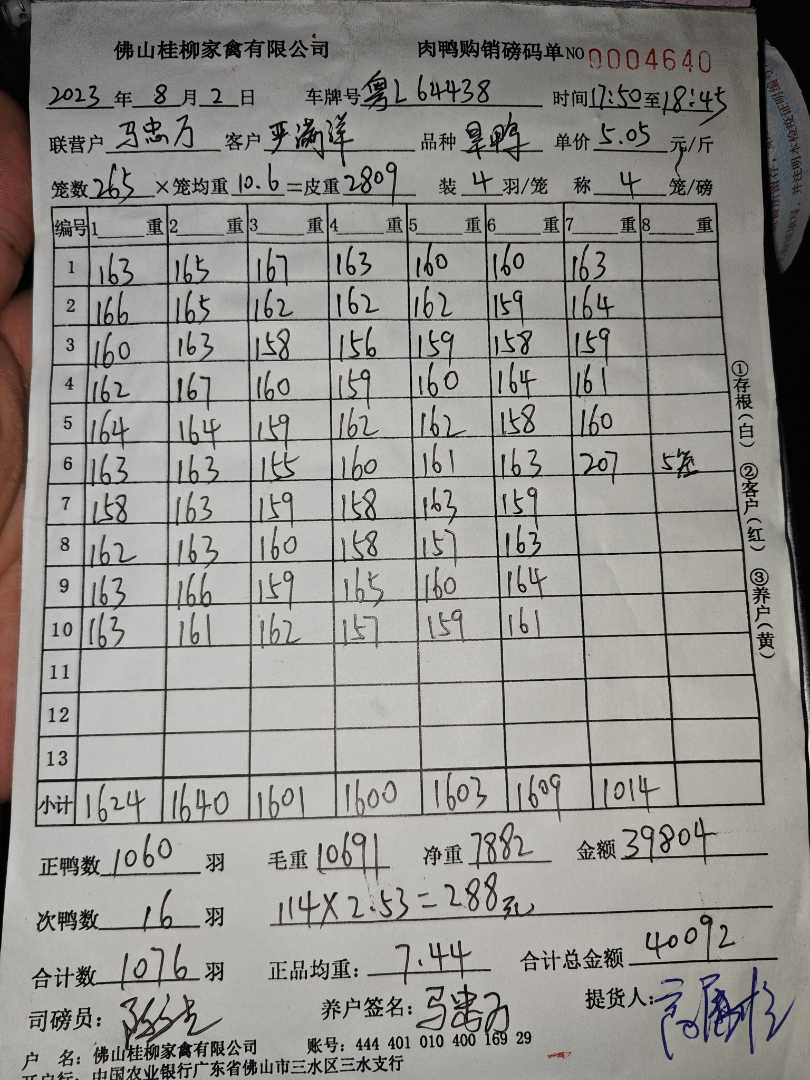 佛山桂柳家禽有限公司 肉鸭购销磅码单 NO 0004640
2023 年 8 月 2 日 车牌号 粤L64438 时间 17:50 至 18:45
联营户 马忠万 客户 严满洋 品种 旱鸭 单价 5.05 元/斤
笼数 265 ×笼均重 10.6 =皮重 2809 装 4 羽/笼 称 4 笼/磅
编号 1 重 2 重 3 重 4 重 5 重 6 重 7 重 8 重
1 163 165 167 163 160 160 163
2 166 165 162 162 162 159 164
3 160 163 158 156 159 158 159
4 162 167 160 159 160 164 161
5 164 164 159 162 162 158 160
6 163 163 155 160 161 163 207 5笼
7 158 163 159 158 163 159
8 162 163 160 158 157 163
9 163 166 159 165 160 164
10 163 161 162 157 159 161
11
12
13
小计 1624 1640 1601 1600 1603 1609 1014
正鸭数 1060 羽 毛重 10691 净重 7882 金额 39804
次鸭数 16 羽 114×2.53=288元
合计数 1076 羽 正品均重: 7.44 合计总金额 40092
司磅员: 养户签名: 马忠万 提货人:
户 名: 佛山桂柳家禽有限公司 账号: 444 401 010 400 169 29
开户行: 中国农业银行广东省佛山市三水区三水支行
①存根(白) ②客户(红) ③养户(黄)